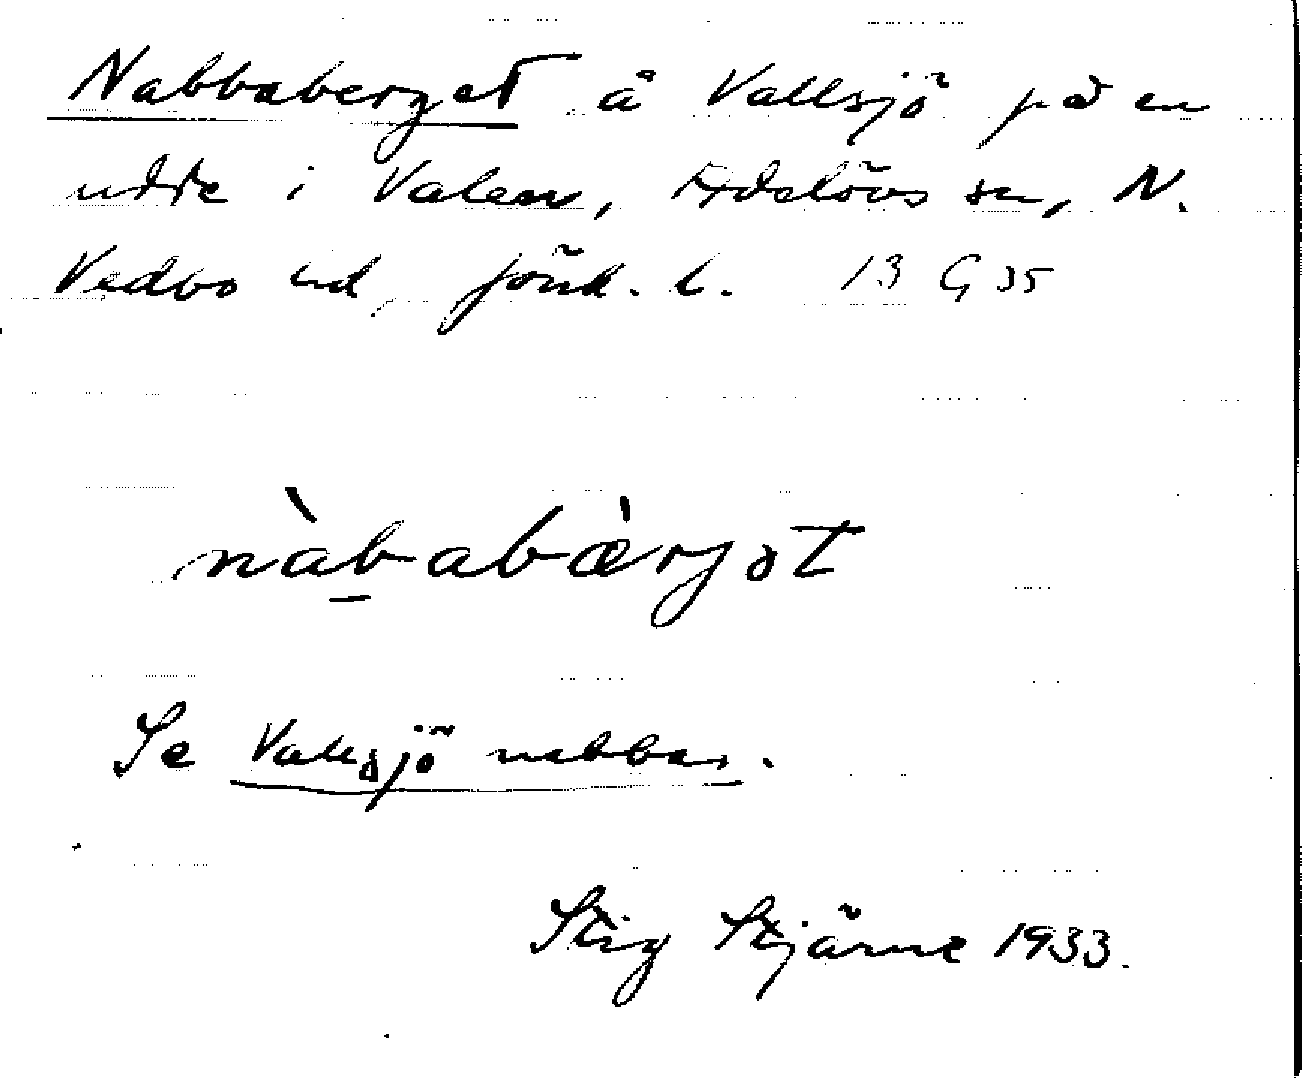 Nabbaberget å Vallsjö på en
udde i Valen, Adelövs sn, N.
Vedbo hd, Jönk. l. 13 G 35
nàbabàrjət
Se Vallsjö nabbar.
Stig Stjärne 1933.